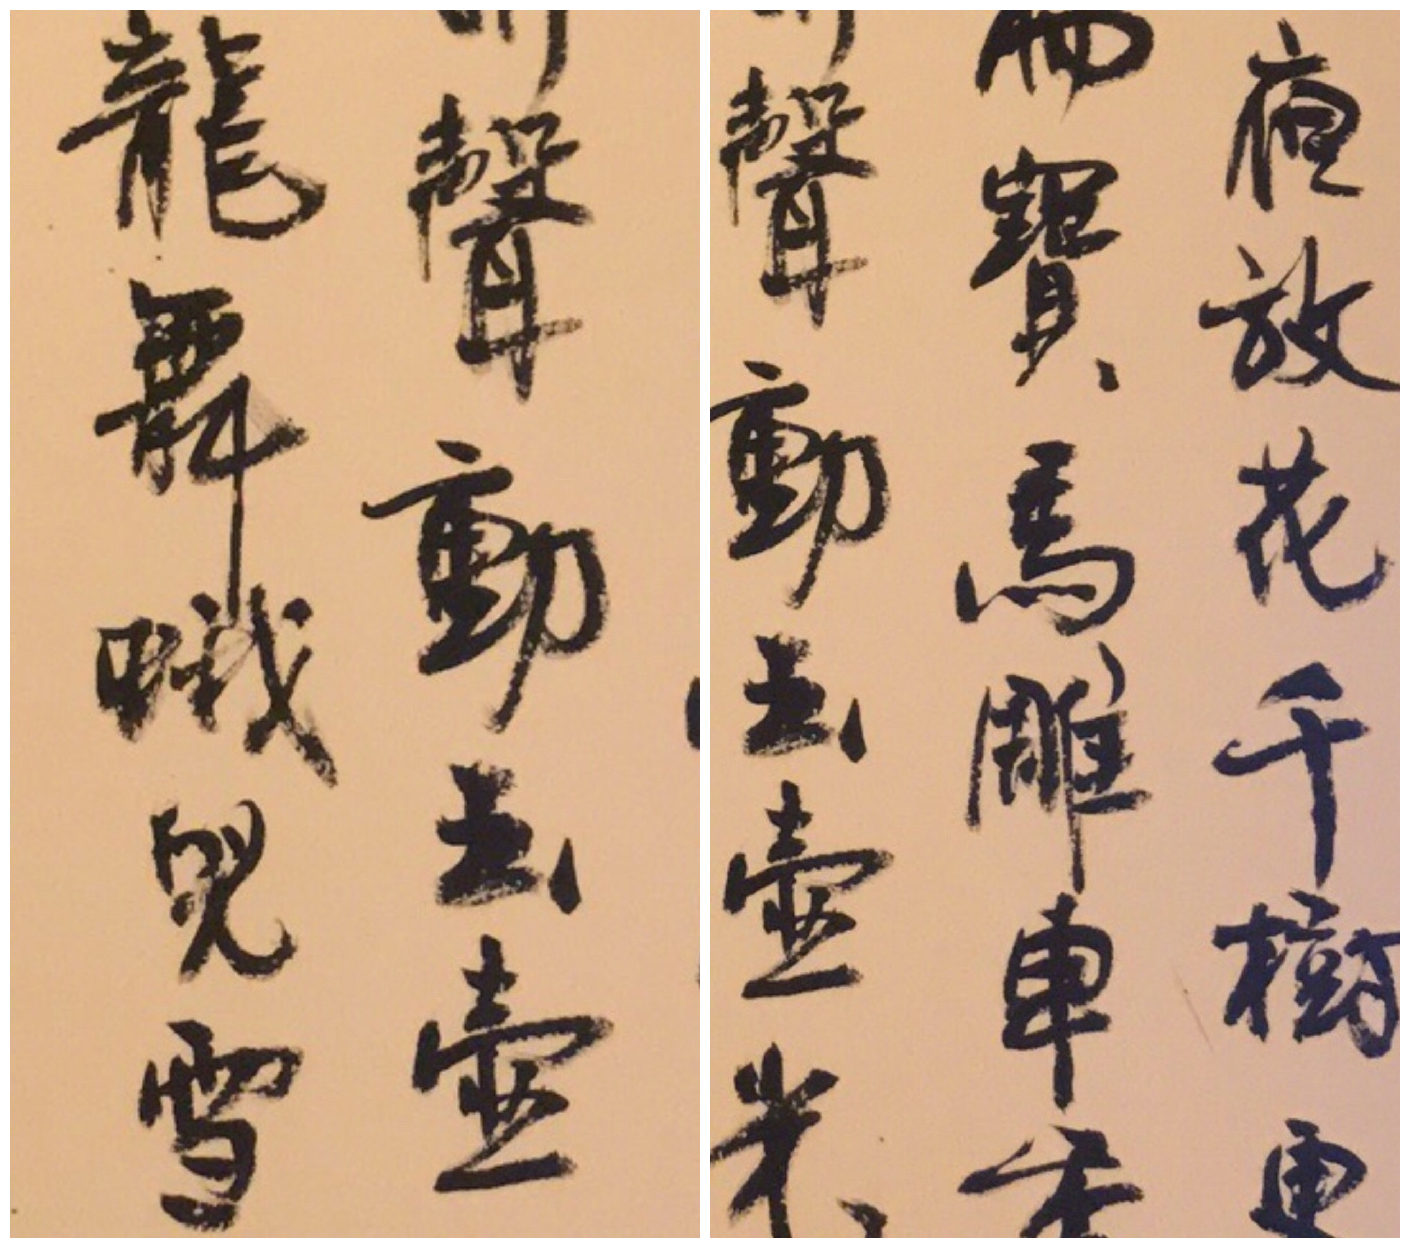 夜放花千樹更
雨寶馬雕車香
聲動玉壺光
聲動玉壺
龍舞蛾兒雪